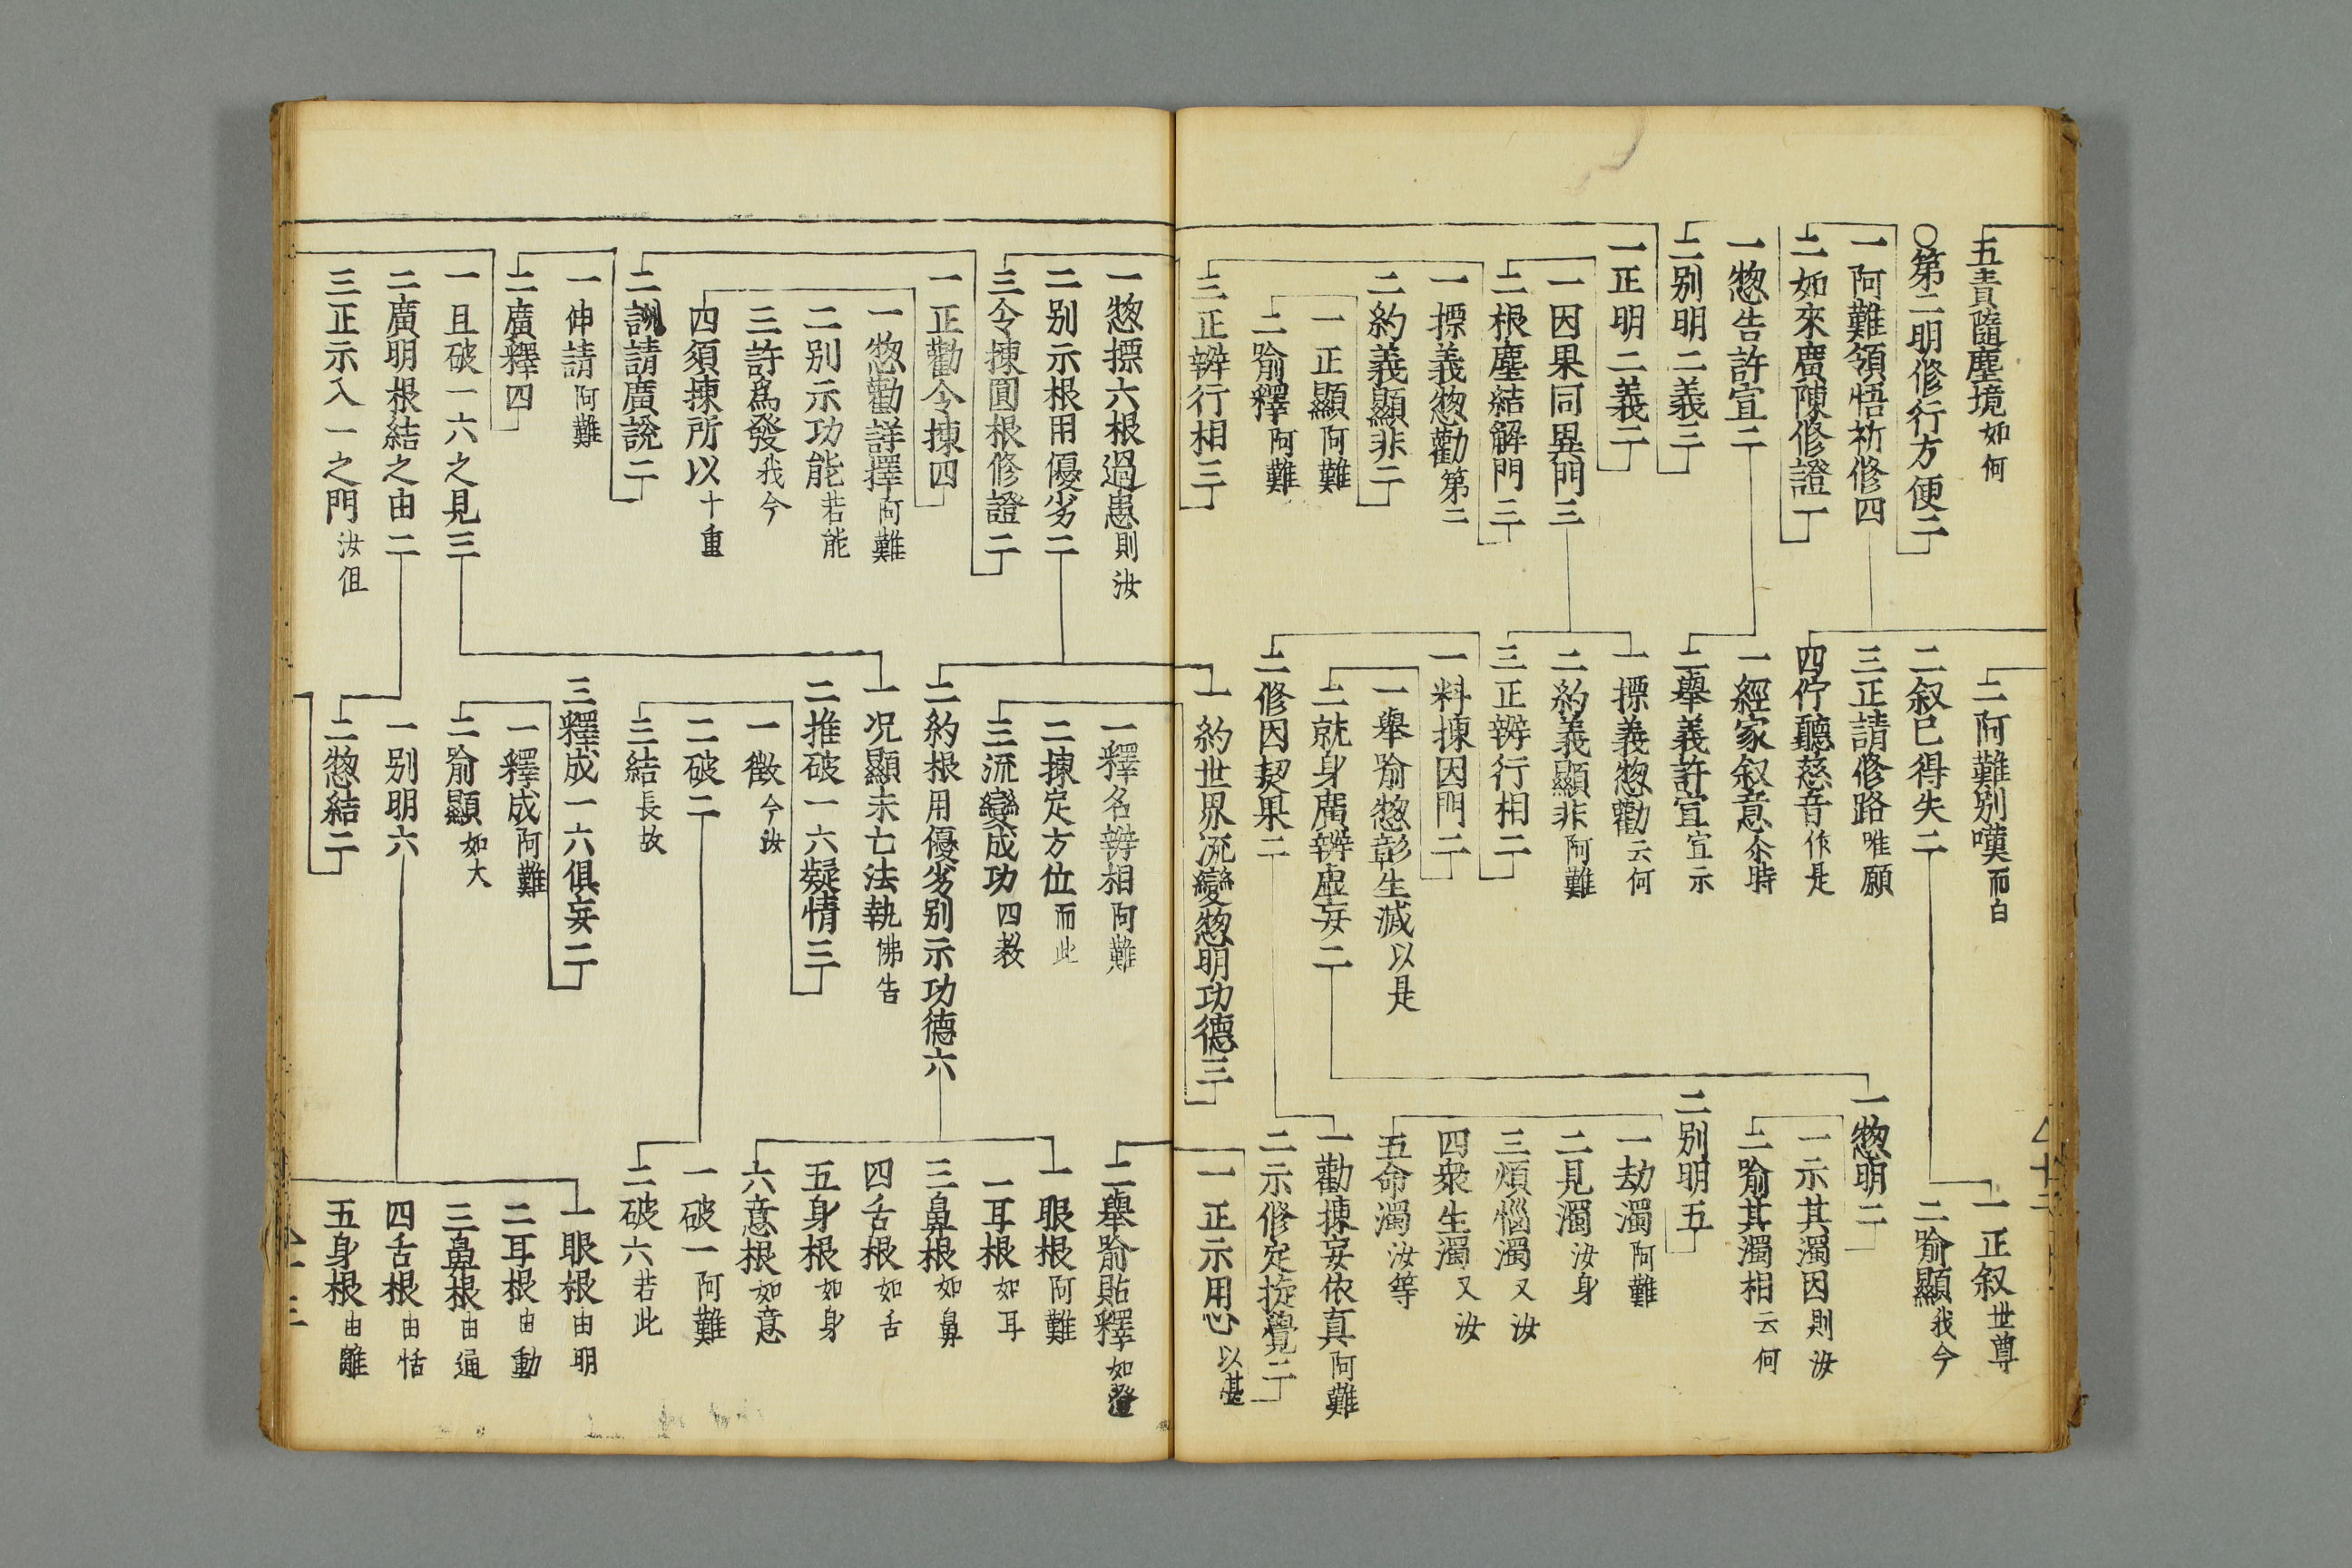 五責隨塵境如何
○第二明修行方便二
一阿難領悟祈修四
二如來廣陳修證二
一惣告許宣二
二別明二義三
一正明二義二
一因果同異門三
二根塵結解門三
一摽義惣勸第二
二約義顯非二
一正顯阿難
二喻釋阿難
三正辨行相三
二阿難別嘆而白
二叙已得失二
三正請修路唯願
四佇聽慈音作是
一經家叙意尒時
二舉義許宣宣示
一摽義惣勸云何
二約義顯非阿難
三正辨行相二
一料揀因門二
一舉喻惣彰生滅以是
二就身廣辨虛妄二
二修因契果二
一約世界流變惣明功德三
一正叙世尊
二喻顯我今
一惣明二
一示其濁因則汝
二喻其濁相云何
二別明五
一劫濁阿難
二見濁汝身
三煩惱濁又汝
四衆生濁又汝
五命濁汝等
一勸揀妄依真阿難
二示修定旋覺二
一正示用心以湛
一惣摽六根過患則汝
二別示根用優劣二
三令揀圓根修證二
一正勸令揀四
一惣勸詳擇阿難
二別示功能若能
三許爲發我今
四須揀所以十重
二詶請廣說二
一伸請阿難
二廣釋四
一且破一六之見三
二廣明根結之由二
三正示入一之門汝但
一釋名辨相阿難
二揀定方位而此
三流變成功四教
二約根用優劣別示功德六
一况顯未亡法執佛告
二推破一六疑情三
一徵今汝
二破二
三結長故
三釋成一六俱妄二
一釋成阿難
二喻顯如大
一別明六
二惣結二
二舉喻貼釋如澄
一眼根阿難
二耳根如耳
三鼻根如鼻
四舌根如舌
五身根如身
六意根如意
一破一阿難
二破六若此
一眼根由明
二耳根由動
三鼻根由通
四舌根由恬
五身根由離